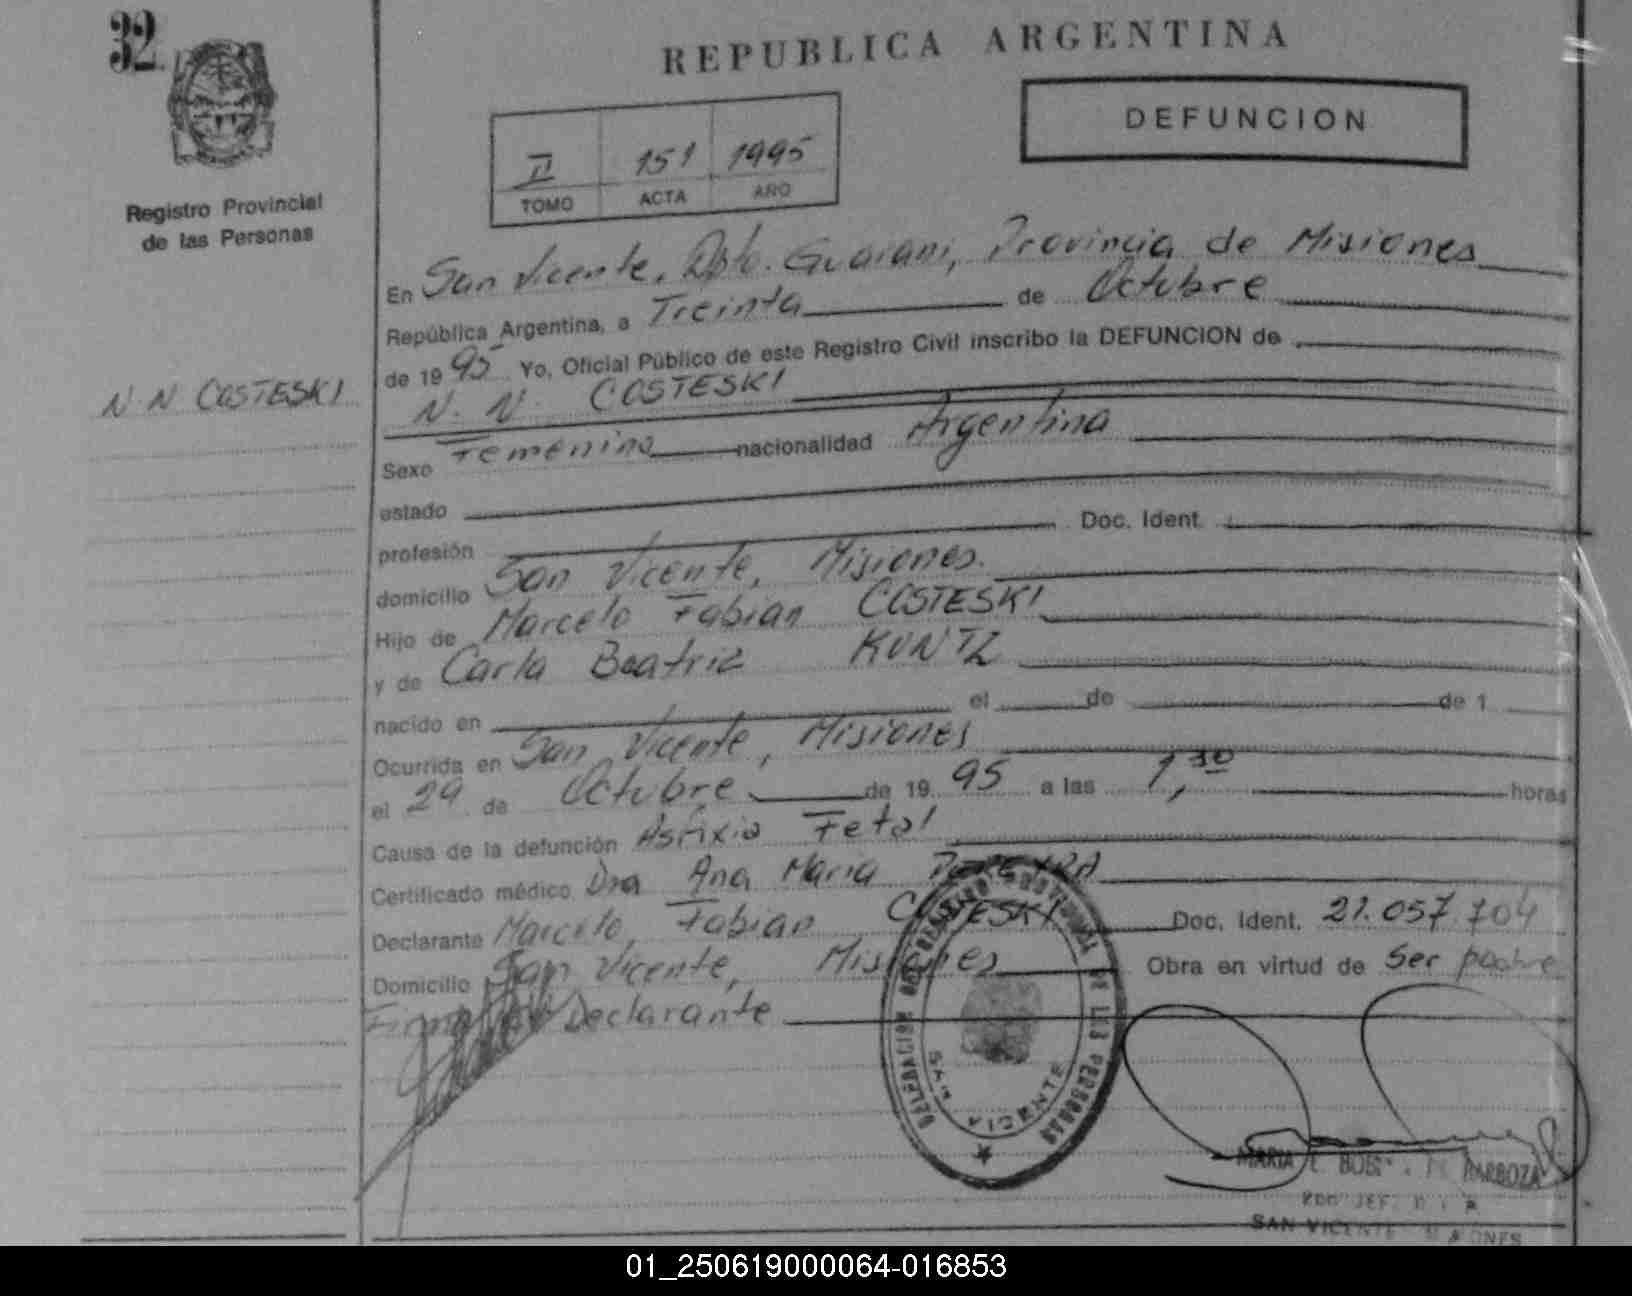 32
REPUBLICA ARGENTINA
DEFUNCION
II 151 1995
TOMO ACTA AÑO
Registro Provincial
de las Personas
N N COSTESKI
En San Vicente, Dpto. Guarani, Provincia de Misiones
República Argentina, a Treinta de Octubre
de 1995 Yo, Oficial Público de este Registro Civil inscribo la DEFUNCION de
N. N. COSTESKI
Sexo Femenino nacionalidad Argentina
estado
profesión Doc. Ident.
domicilio San Vicente, Misiones.
Hijo de Marcelo Fabian COSTESKI
y de Carla Beatriz KUNTZ
nacido en el de de 1
Ocurrida en San Vicente, Misiones
el 29 de Octubre de 1995 a las 1,30 horas
Causa de la defunción Asfixia Fetal
Certificado médico Dra Ana Maria PEREYRA
Declarante Marcelo, Fabian COSTESKI Doc. Ident. 21.057.704
Domicilio San Vicente, Misiones Obra en virtud de Ser padre
Firma Declarante
DELEGACION DE REGISTRO PROVINCIAL DE LAS PERSONAS
SAN VICENTE
MARIA E. BARBOZA
SAN VICENTE MISIONES
01_250619000064-016853